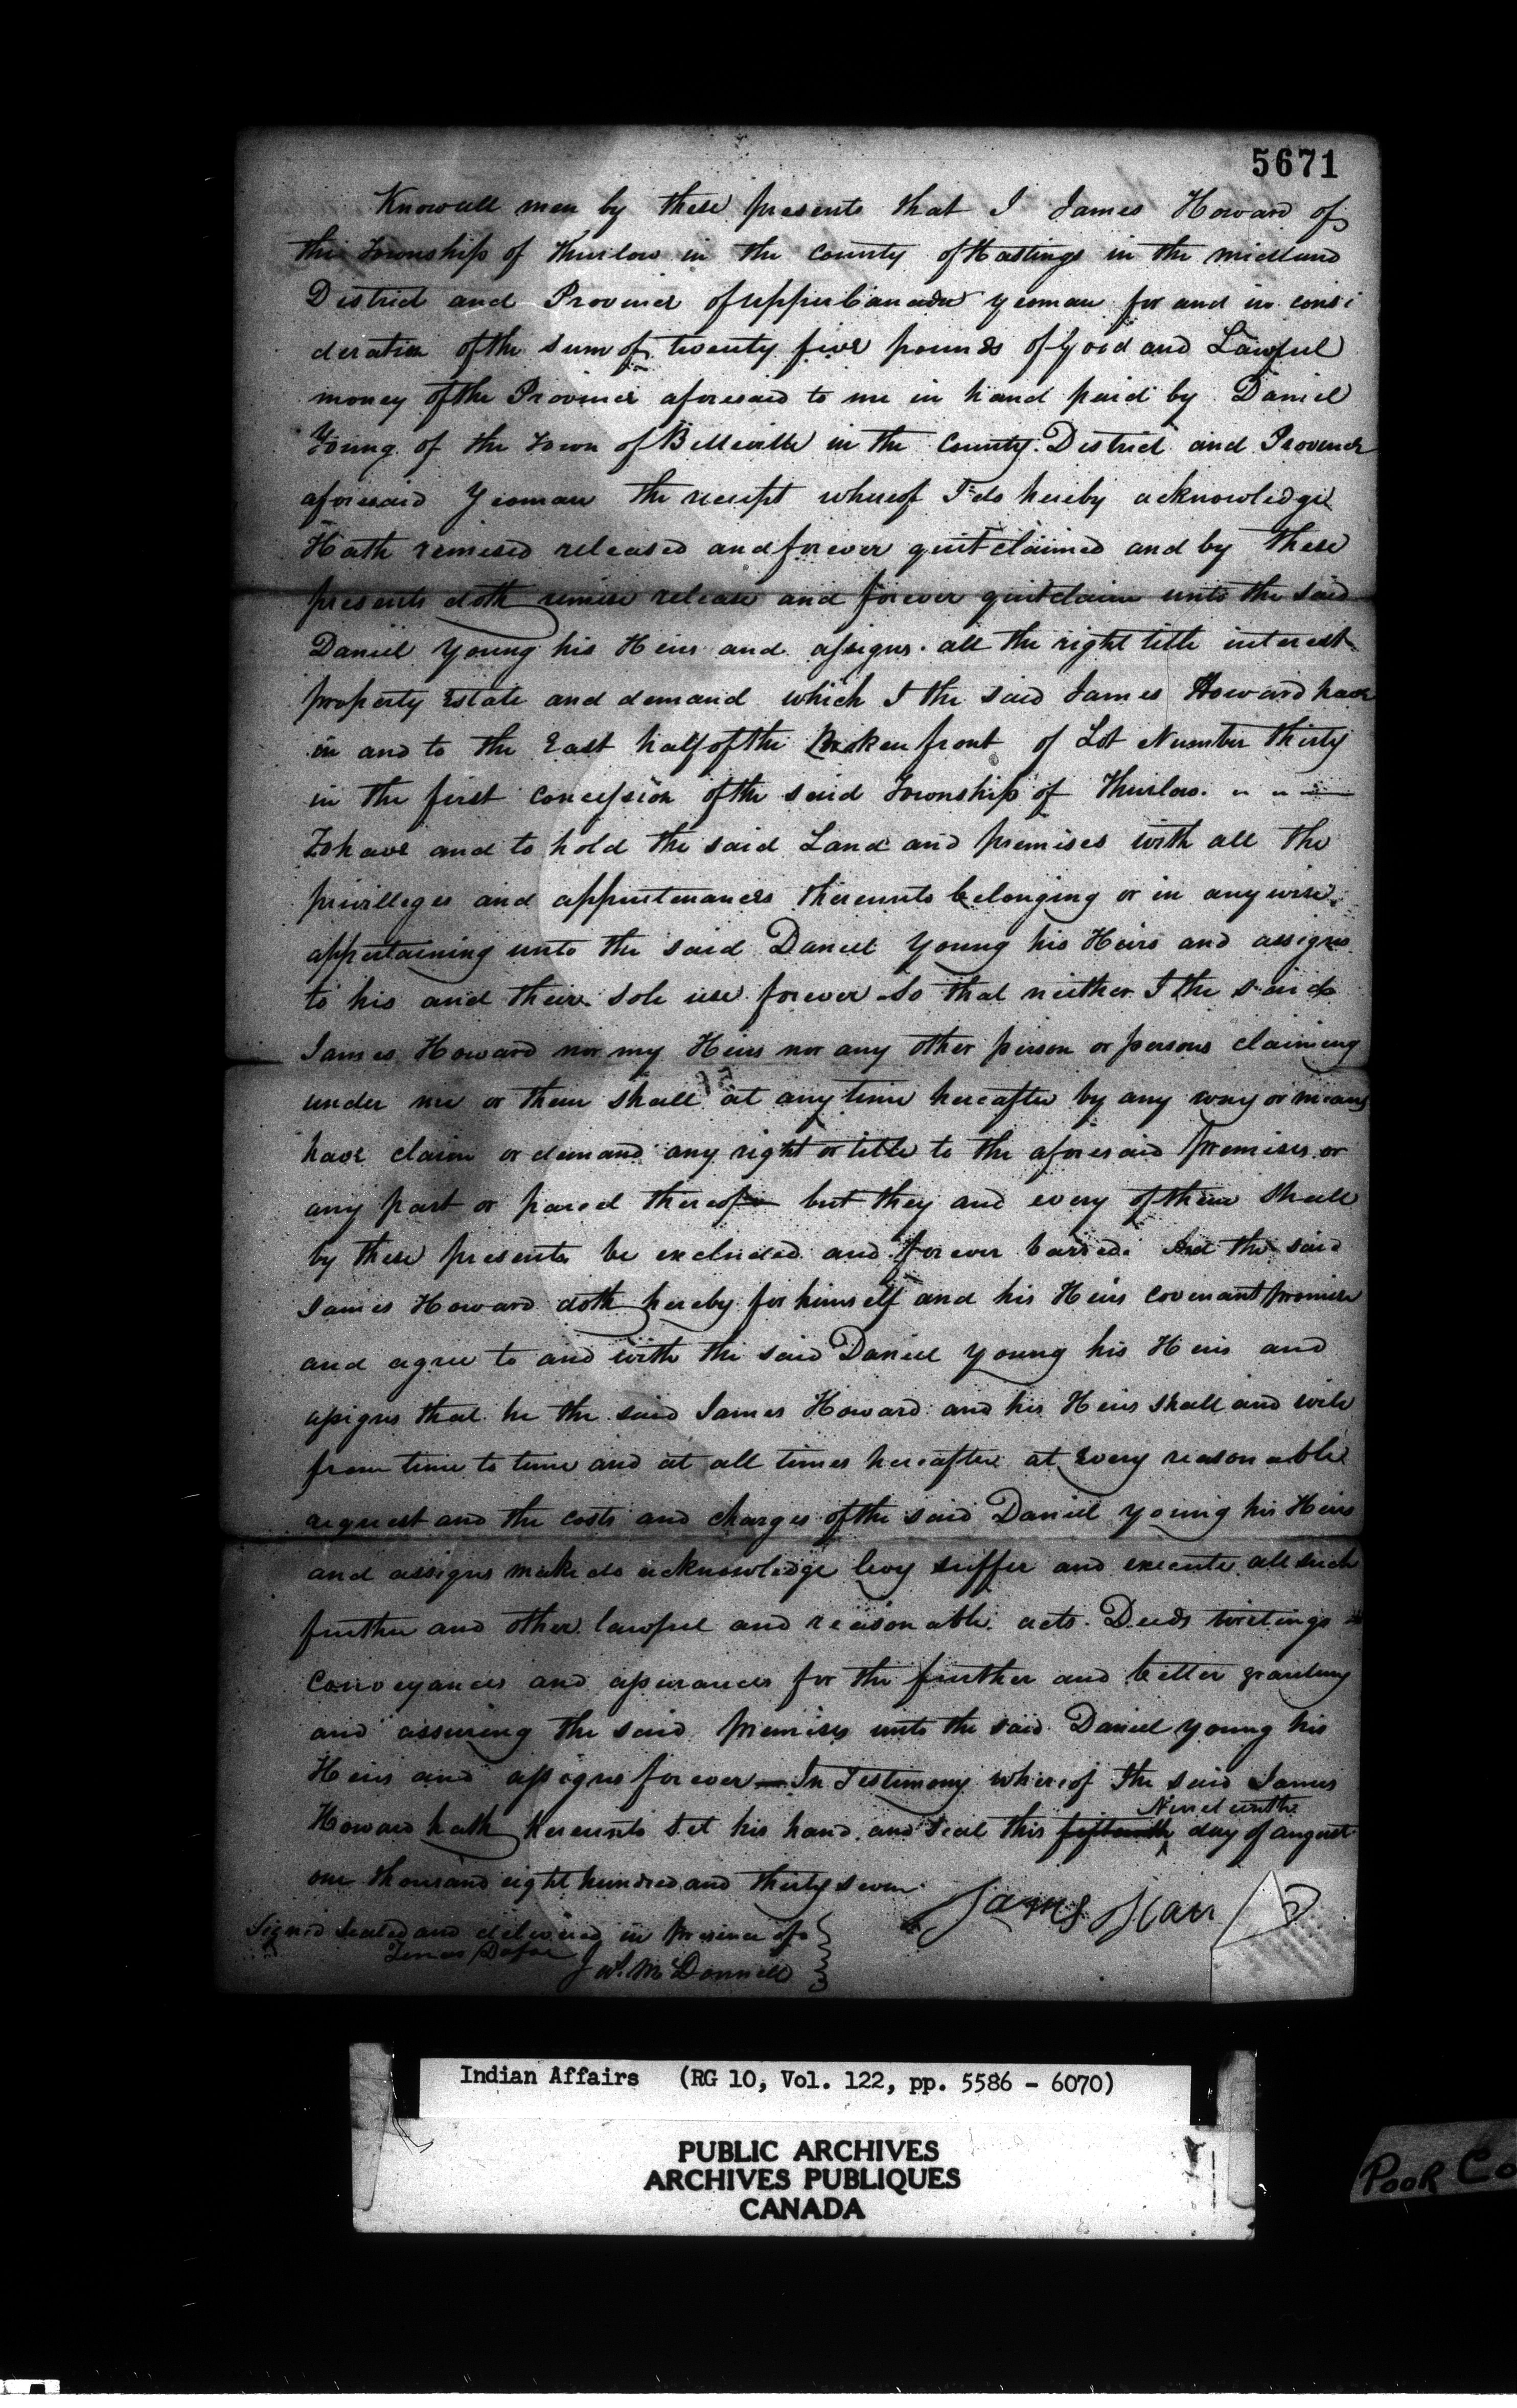 5671
Know all men by these presents that I James Howard of
the Township of Thurlow in the County of Hastings in the midland
District and Province of upper Canada yeoman for and in consi
deration of the sum of twenty five pounds of Good and Lawful
money of the Province aforesaid to me in hand paid by Daniel
Young of the Town of Belleville in the County District and Province
aforesaid Yeoman the receipt whereof I do hereby acknowledge
Hath remised released and forever quitclaimed and by these
presents doth remise release and forever quitclaim unto the said
Daniel Young his Heirs and assigns all the right title interest
property Estate and demand which I the said James Howard have
in and to the East half of the Broken front of Lot Number thirty
in the first Concession of the said Township of Thurlow.
To have and to hold the said Land and premises with all the
privilleges and appurtenances thereunto belonging or in any wise
appertaining unto the said Daniel Young his Heirs and assigns
to his and their sole use forever So that neither I the said
James Howard nor my Heirs nor any other person or persons claiming
under me or them shall at any time hereafter by any way or means
have claim or demand any right or title to the aforesaid premises or
any part or parcel thereof but they and every of them shall
by these presents be excluded and forever barred. And the said
James Howard doth hereby for himself and his Heirs covenant promise
and agree to and with the said Daniel Young his Heirs and
assigns that he the said James Howard and his Heirs shall and will
from time to time and at all times hereafter at Every reasonable
request and the costs and charges of the said Daniel Young his Heirs
and assigns make do acknowledge levy suffer and execute all such
further and other lawful and reasonable acts Deeds writings
Conveyances and assurances for the further and better granting
and assuring the said premises unto the said Daniel Young his
Heirs and assigns forever — In Testimony whereof the said James
Nineteenth
Howard hath Hereunto Set his hand and seal this fifteenth day of august
one thousand eight hundred and thirty seven
Signed sealed and delivered in Presence of
James
McDonnell
Indian Affairs (RG 10, Vol. 122, pp. 5586 - 6070)
PUBLIC ARCHIVES
ARCHIVES PUBLIQUES
CANADA
POOR CO